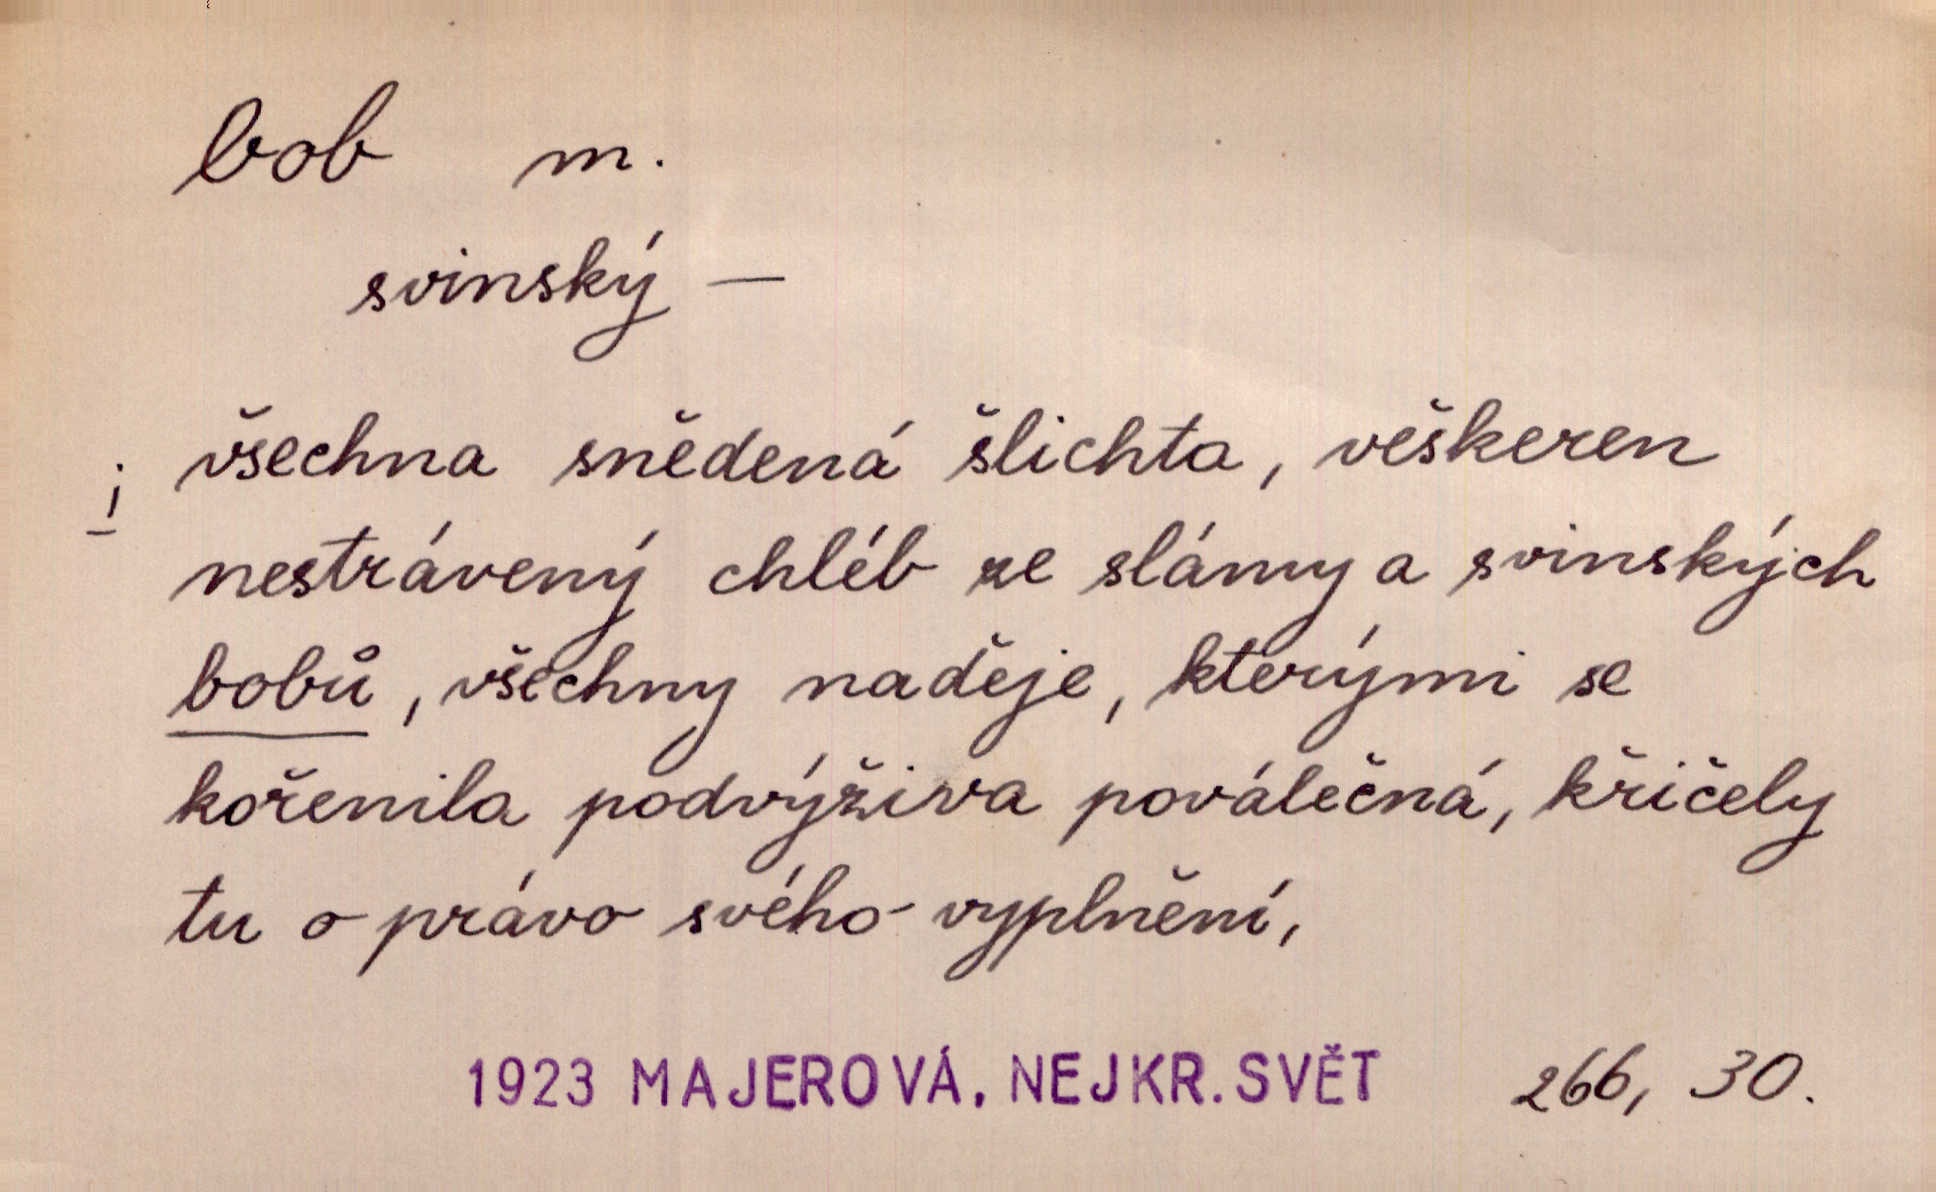 bob m.
svinský —
i všechna snědená šlichta, veškeren
nestrávený chléb ze slámy a svinských
bobů, všechny naděje, kterými se
kořenila podvýživa poválečná, křičely
tu o právo svého vyplnění,
1923 MAJEROVÁ, NEJKR. SVĚT 266, 30.